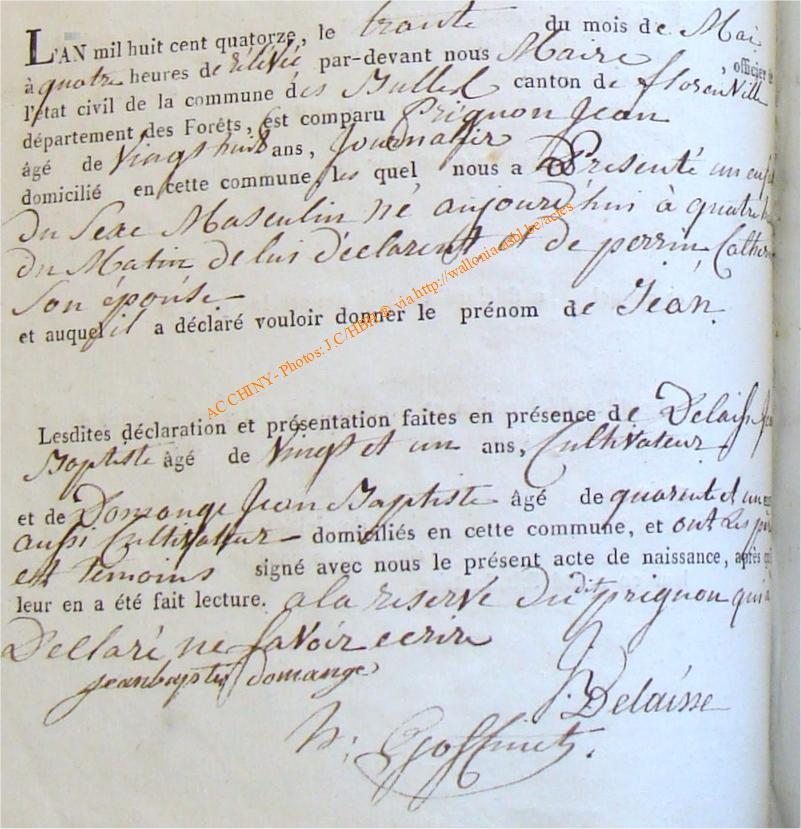 L'AN mil huit cent quatorze, le trante du mois de Mai
à quatre heures de rélévée par-devant nous Maire, officier
l'état civil de la commune des Bulles canton de florenville
département des Forêts, est comparu Prignon Jean
âgé de Vingt huit ans, Journalier
domicilié en cette commune, les quel nous a Présenté un
du Sexe Masculin né aujourd'hui à quatre
du Matin de lui déclarent et de perrin
Son épouse
et auquel il a déclaré vouloir donner le prénom de Jéan.
AC CHINY - Photos: J.C/HBH © via http://wallonia-asbl.be/actes
Lesdites déclaration et présentation faites en présence de Delaisse
Baptiste âgé de Vingt et un ans, Cultivateur
et de Domange Jean Baptiste âgé de quarente et un
aussi Cultivateur – domiciliés en cette commune, et ont les
est témoins signé avec nous le présent acte de naissance, après
leur en a été fait lecture. a la reserve du dit prignon qui
Déclaré ne savoir ecrire
jean baptis domange
J. Delaisse
h: Goffinet.